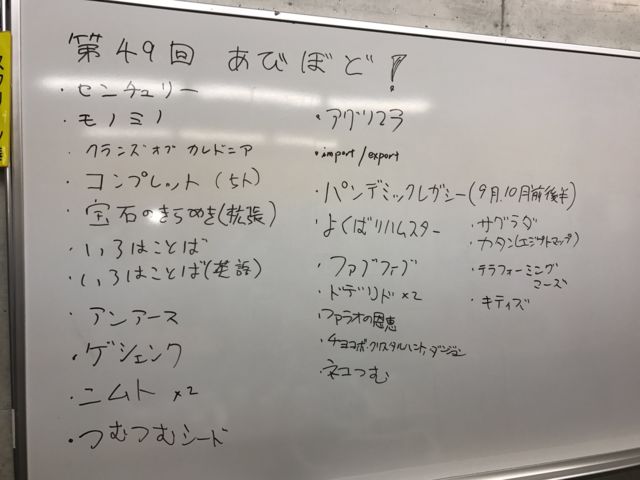 第49回 あびぼど!
・センチュリー
・モノミノ
・クランズオブ カレドニア
・コンプレット (5人)
・宝石のきらめき(拡張)
・いろはことば
・いろはことば(英語)
・アンアース
・ゲシェンク
・ニムト ×2
・つむつむシード
・アグリコラ
・import/export
・パンデミックレガシー(9月、10月前後半)
・よくばりハムスター
・ファブファブ
・ドデリド ×2
・ファラオの恩恵
・チョコボ・クリスタルハント・ダンジョン
・ネコつむ
・サグラダ
・カタン(エジプトマップ)
・テラフォーミング
マーズ
・キティズ